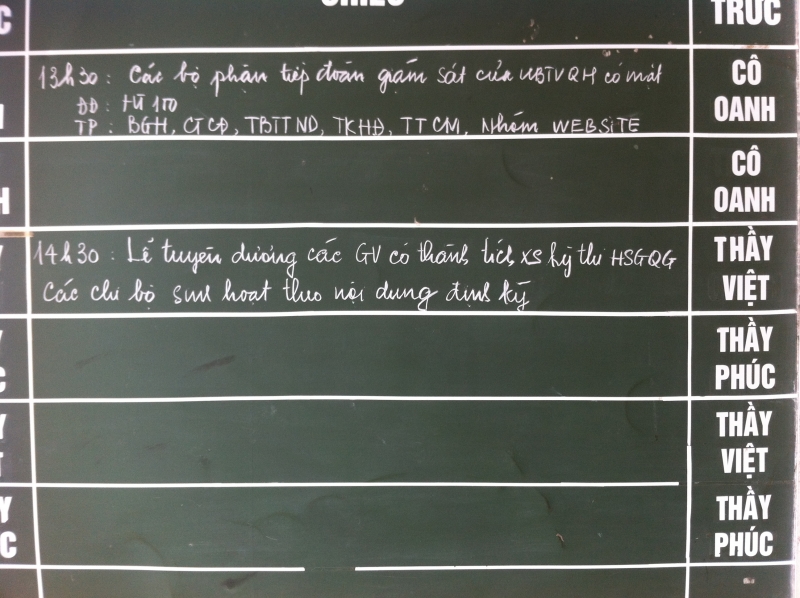 CHIỀU
TRỰC
13h30: Các bộ phận tiếp đoàn giám sát của UBTVQH có mặt
ĐĐ: HT
TP: BGH, CTCĐ, TBTTND, TKHĐ, TTCM, Nhóm WEBSITE
CÔ
OANH
CÔ
OANH
14h30: Lễ tuyên dương các GV có thành tích XS kỳ thi HSGQG
Các chi bộ sinh hoạt theo nội dung định kỳ
THẦY
VIỆT
THẦY
PHÚC
THẦY
VIỆT
THẦY
PHÚC